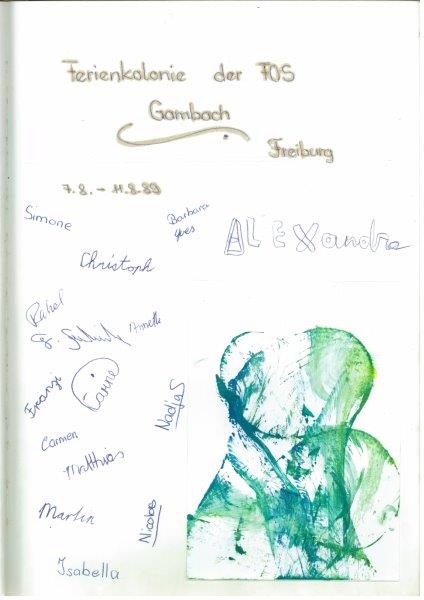 Ferienkolonie der FOS
Gambach
Freiburg
7.8. - 11.8.89
Simone
Barbara
Yves
ALEXandra
Christoph
Rahel
Annette
Franzi
Carine
Nadja S
Carmen
Matthias
Martin
Nicolas
Isabella